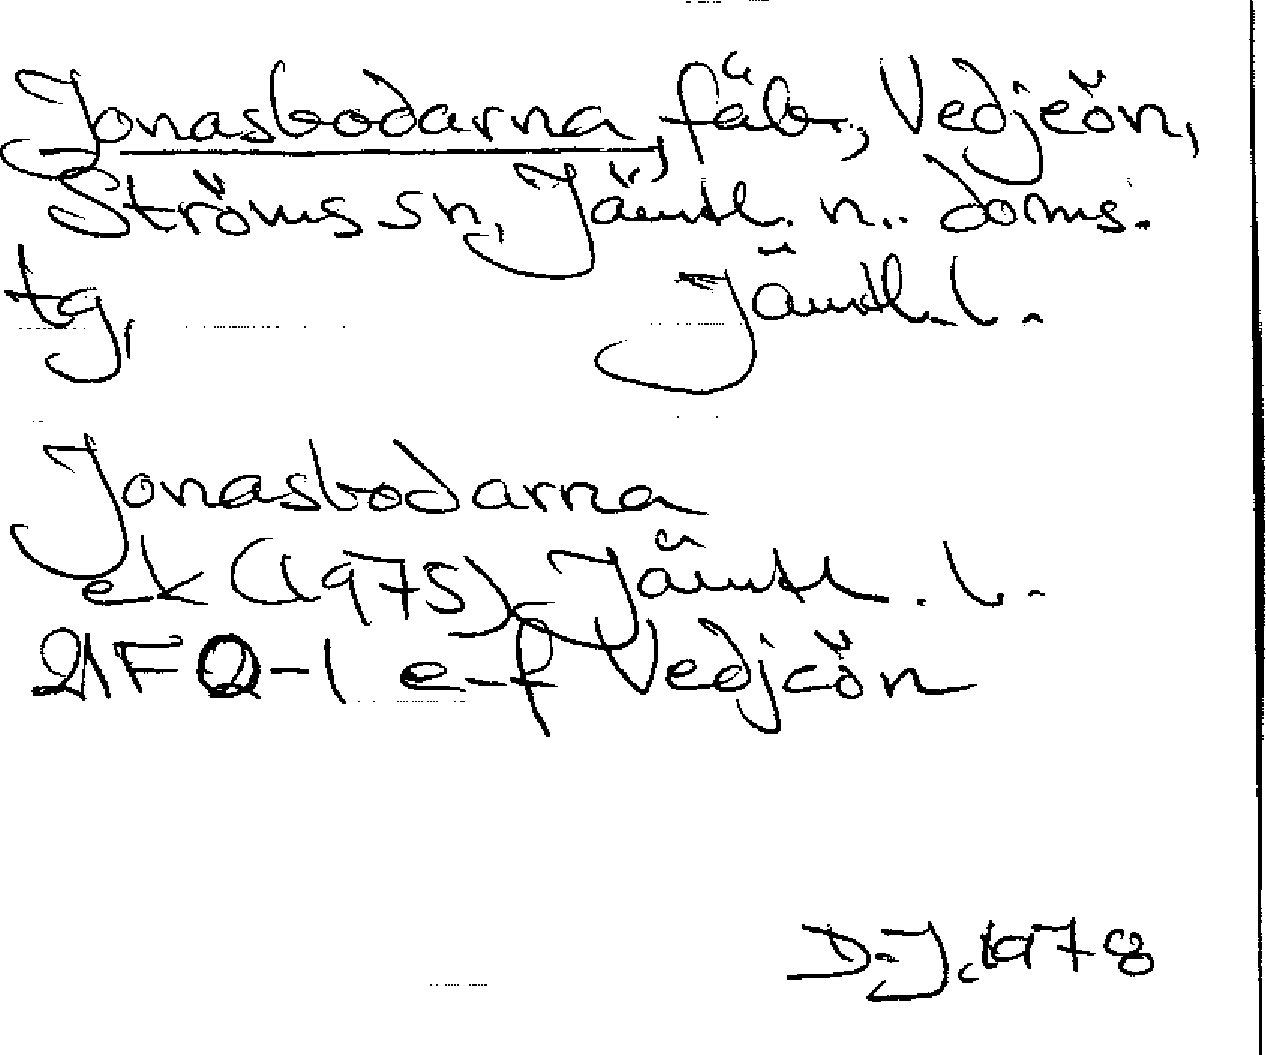 Jonasbodarna, fäb., Vedjeön,
Ströms sn, Jämtl. n.. doms.
tg, Jämtl. l.
Jonasbodarna
ek (1975), Jämtl. l.
21F Q-1 e-f Vedjeön
D.J. 1978